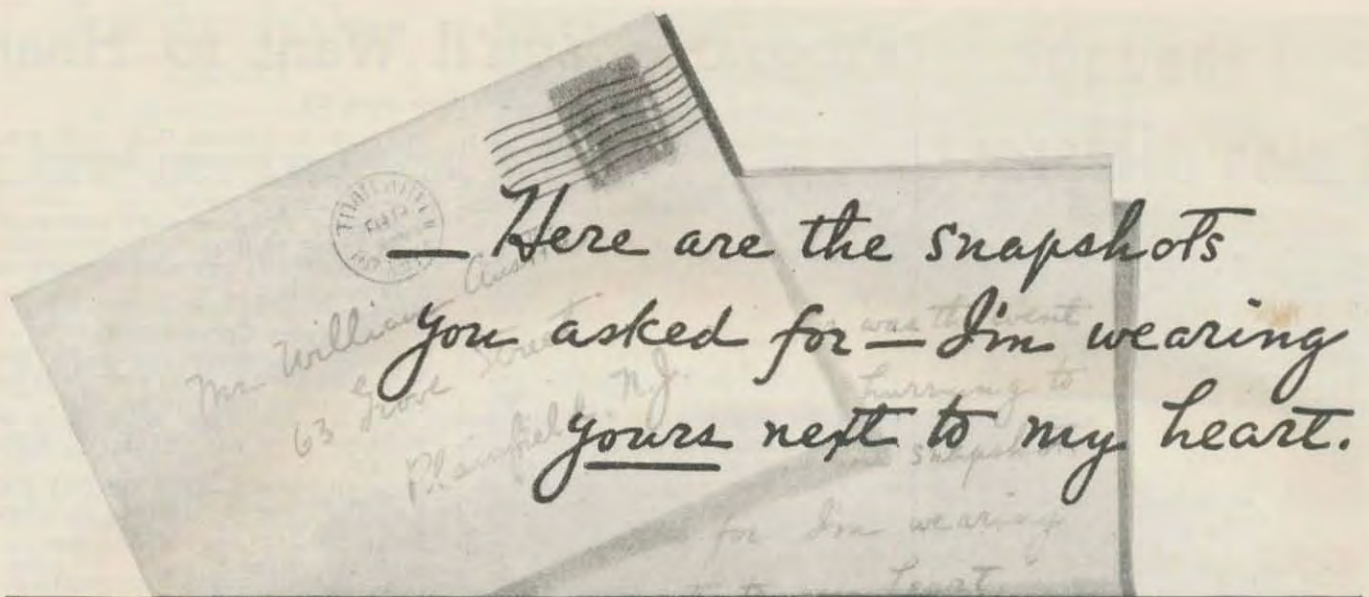 — Here are the snapshots
you asked for — I'm wearing
yours next to my heart.
Mr. William Austin
63 Grove Street
Plainfield, N.J.
was the
hurrying to
snapshots
for I'm wearing
heart